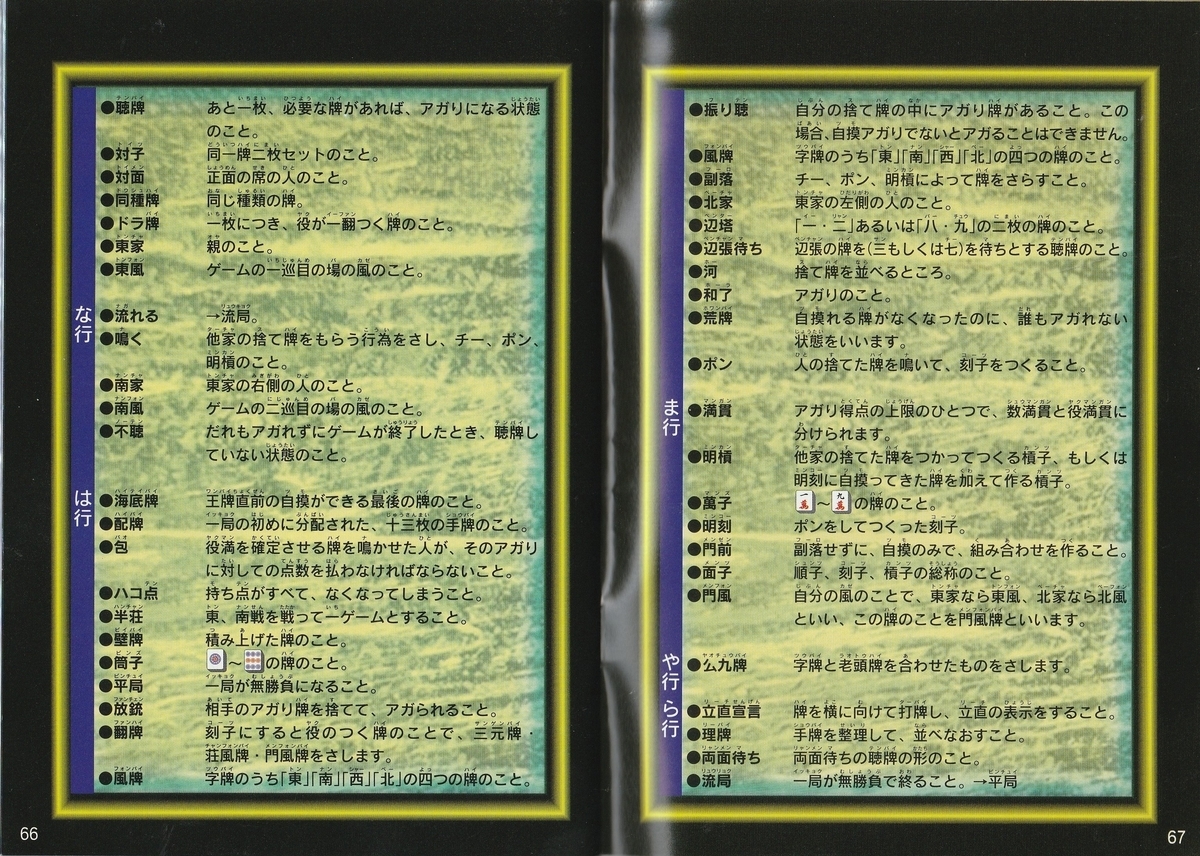 ●聴牌 あと一枚、必要な牌があれば、アガりになる状態
のこと。
●対子 同一牌二枚セットのこと。
●対面 正面の席の人のこと。
●同種牌 同じ種類の牌。
●ドラ牌 一枚につき、役が一翻つく牌のこと。
●東家 親のこと。
●東風 ゲームの一巡目の場の風のこと。
な行
●流れる →流局。
●鳴く 他家の捨て牌をもらう行為をさし、チー、ポン、
明槓のこと。
●南家 東家の右側の人のこと。
●南風 ゲームの二巡目の場の風のこと。
●不聴 だれもアガれずにゲームが終了したとき、聴牌し
ていない状態のこと。
は行
●海底牌 王牌直前の自摸ができる最後の牌のこと。
●配牌 一局の初めに分配された、十三枚の手牌のこと。
●包 役満を確定させる牌を鳴かせた人が、そのアガり
に対しての点数を払わなければならないこと。
●ハコ点 持ち点がすべて、なくなってしまうこと。
●半荘 東、南戦を戦って一ゲームとすること。
●壁牌 積み上げた牌のこと。
●筒子 ～の牌のこと。
●平局 一局が無勝負になること。
●放銃 相手のアガり牌を捨てて、アガられること。
●翻牌 刻子にすると役のつく牌のことで、三元牌・
荘風牌・門風牌をさします。
●風牌 字牌のうち「東」「南」「西」「北」の四つの牌のこと。
66
●振り聴 自分の捨て牌の中にアガり牌があること。この
場合、自摸アガりでないとアガることはできません。
●風牌 字牌のうち「東」「南」「西」「北」の四つの牌のこと。
●副落 チー、ポン、明槓によって牌をさらすこと。
●北家 東家の左側の人のこと。
●辺塔 「一・二」あるいは「八・九」の二枚の牌のこと。
●辺張待ち 辺張の牌を(三もしくは七)を待ちとする聴牌のこと。
●河 捨て牌を並べるところ。
●和了 アガりのこと。
●荒牌 自摸れる牌がなくなったのに、誰もアガれない
状態をいいます。
●ポン 人の捨てた牌を鳴いて、刻子をつくること。
ま行
●満貫 アガり得点の上限のひとつで、数満貫と役満貫に
分けられます。
●明槓 他家の捨てた牌をつかってつくる槓子、もしくは
明刻に自摸ってきた牌を加えて作る槓子。
●萬子 一萬～九萬の牌のこと。
●明刻 ポンをしてつくった刻子。
●門前 副落せずに、自摸のみで、組み合わせを作ること。
●面子 順子、刻子、槓子の総称のこと。
●門風 自分の風のことで、東家なら東風、北家なら北風
といい、この牌のことを門風牌といいます。
や行
●么九牌 字牌と老頭牌を合わせたものをさします。
ら行
●立直宣言 牌を横に向けて打牌し、立直の表示をすること。
●理牌 手牌を整理して、並べなおすこと。
●両面待ち 両面待ちの聴牌の形のこと。
●流局 一局が無勝負で終ること。→平局
67